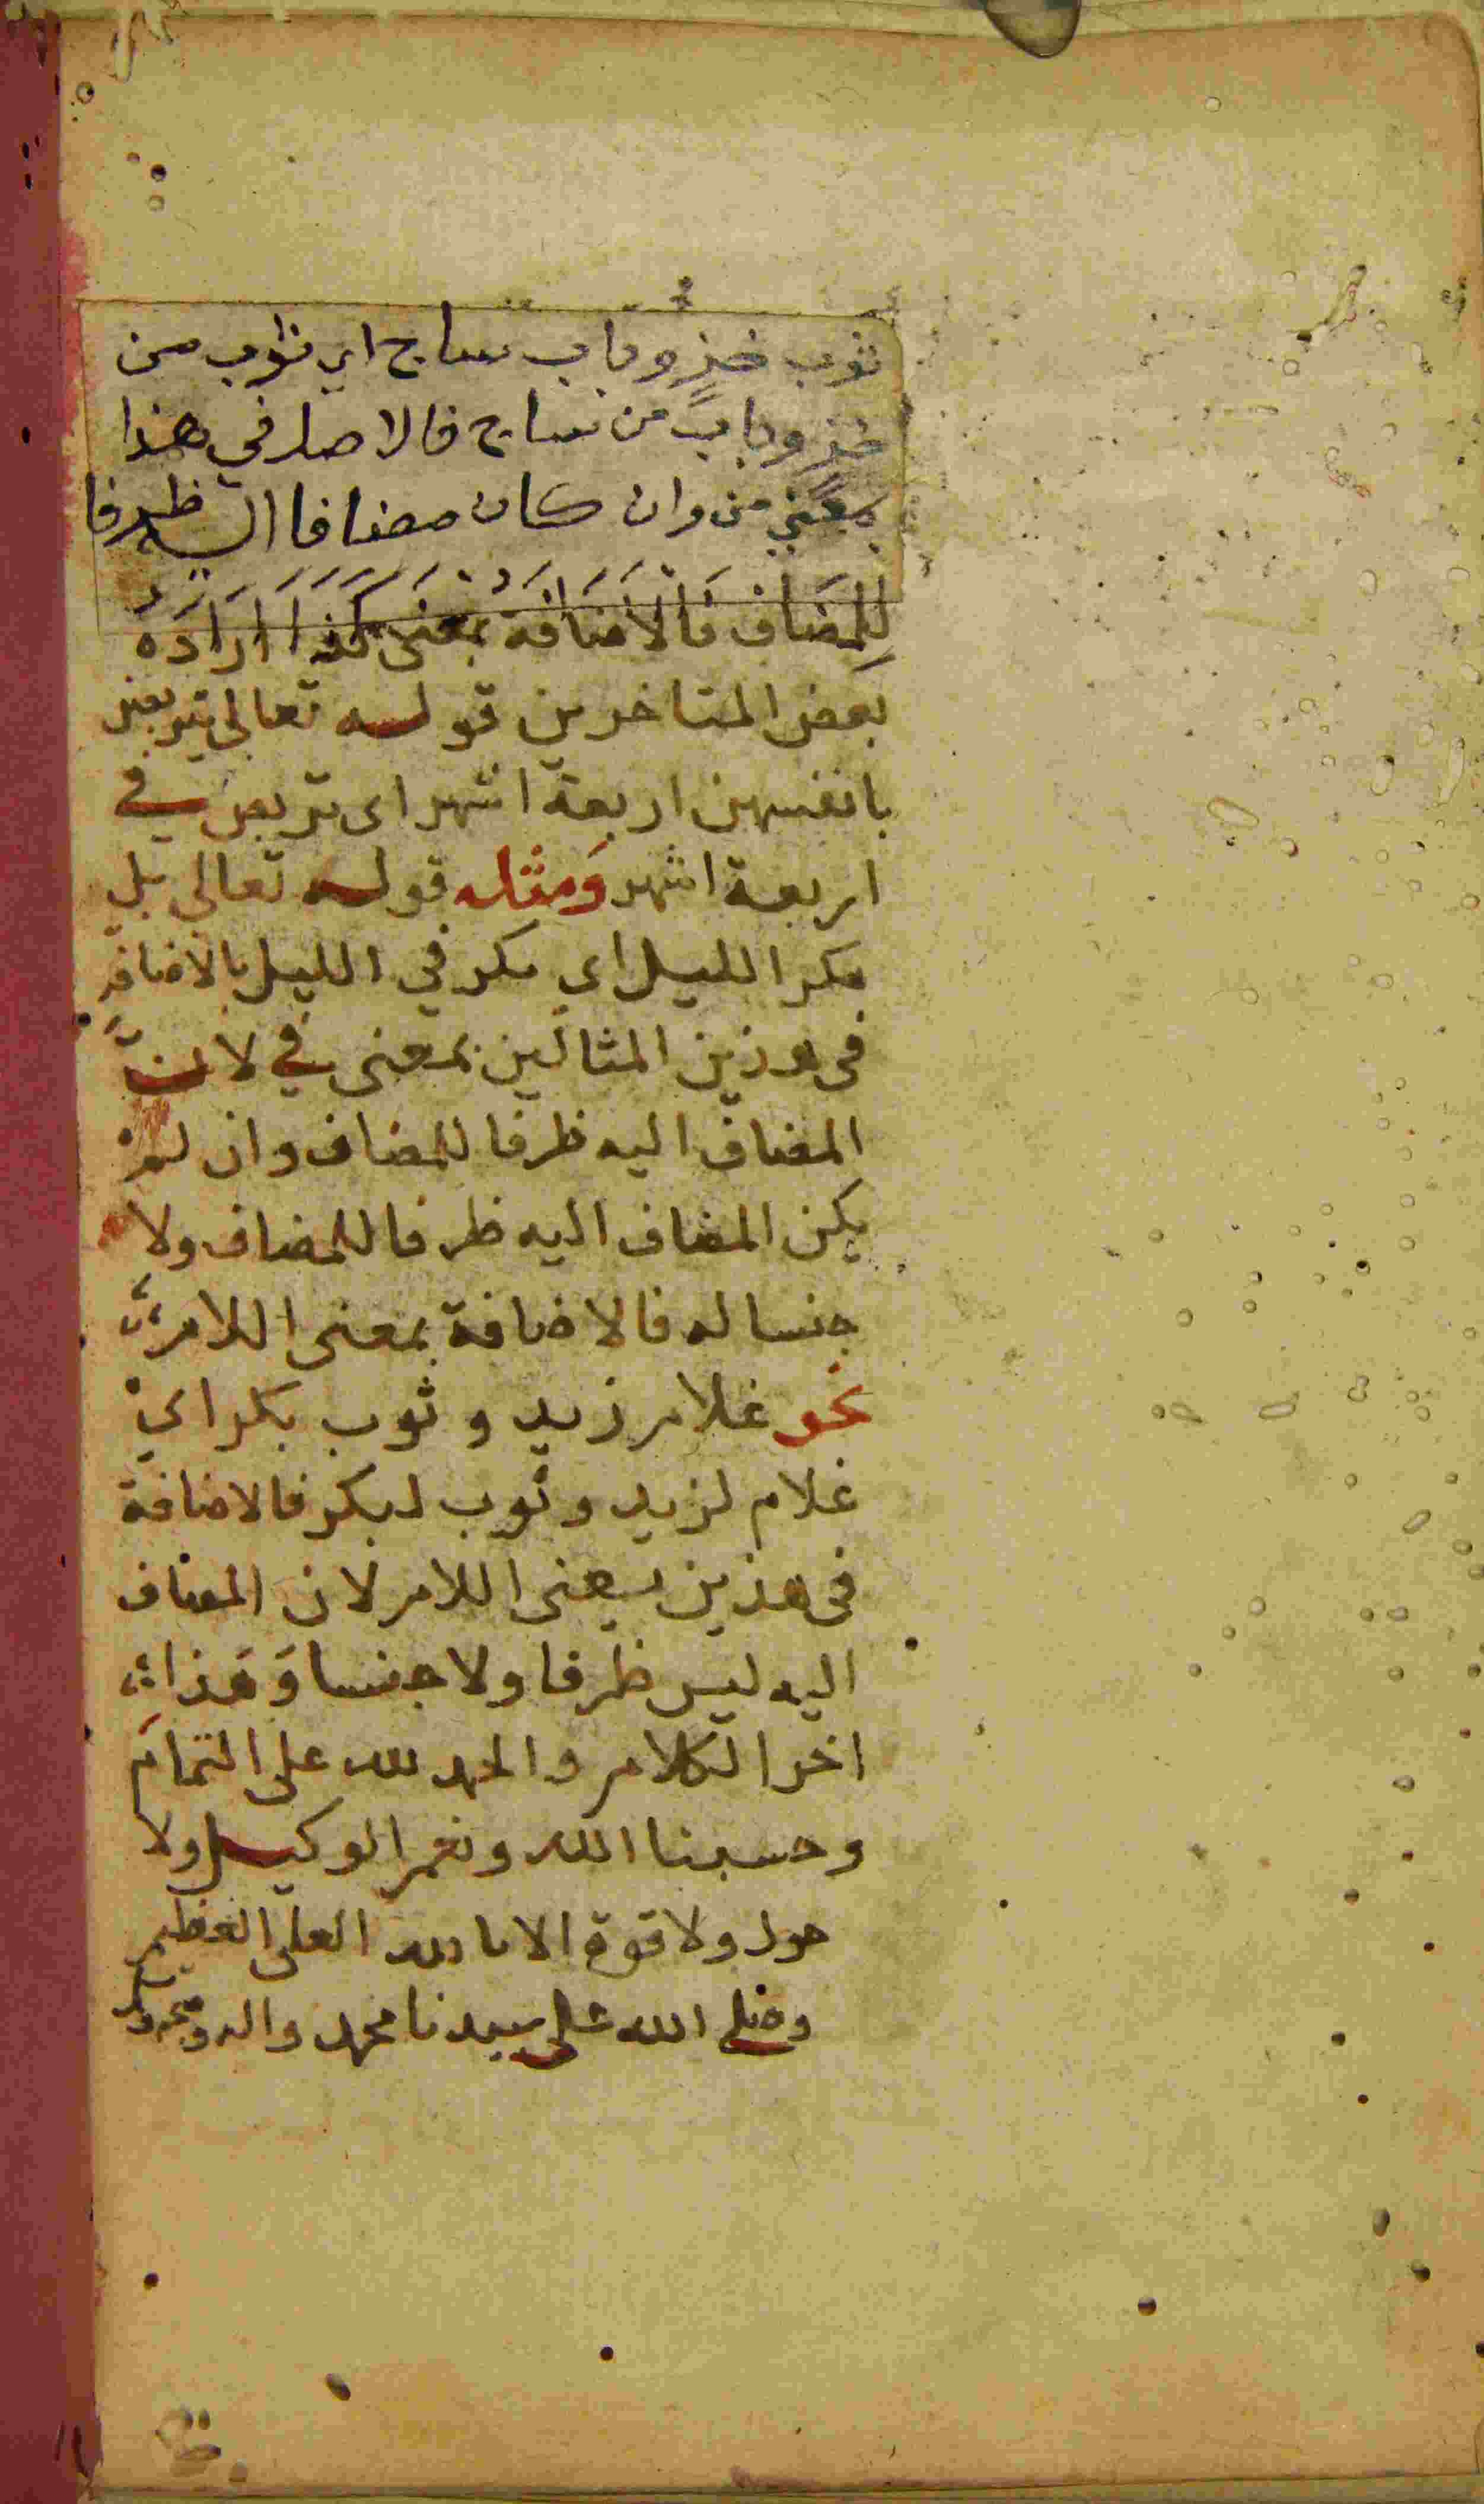 ثوب خز وباب ساج اي ثوب من
خز وباب من ساج فالاصل في هذا
بمعني من وان كان مضافا اليه ظرفا
لِلمضَاف فَالاضَافَة بمعنى كَذَا ارَادَه
بعض المتاخرين قوله تعالى يتربصن
بانفسهن اربعة اشهر اى تربص في
اربعة اشهر وَمثله قوله تعالي بل
مكر الليل اي مكر في الليل بالاضافة
فى هذين المثالين بمعنى في لانَّ
المضاف اليه ظرفا للمضاف وان لم
يكن المضاف اليه ظرفا للمضاف ولا
جنسا له فالاضافة بمعنى اللام
نحو غلام زيد وثوب بكر اي
غلام لزيد وثوب لبكر فالاضافة
فى هذين بمعنى اللام لان المضاف
اليه ليس ظرفا ولا جنسا وَهَذا
اخر الكلام والحمد لله على التمام
وحسبنا الله ونعم الوكيل ولا
حول ولا قوة الا بالله العلى العظيم
وصلى الله على سيدنا محمد واله وصحبه وسلم